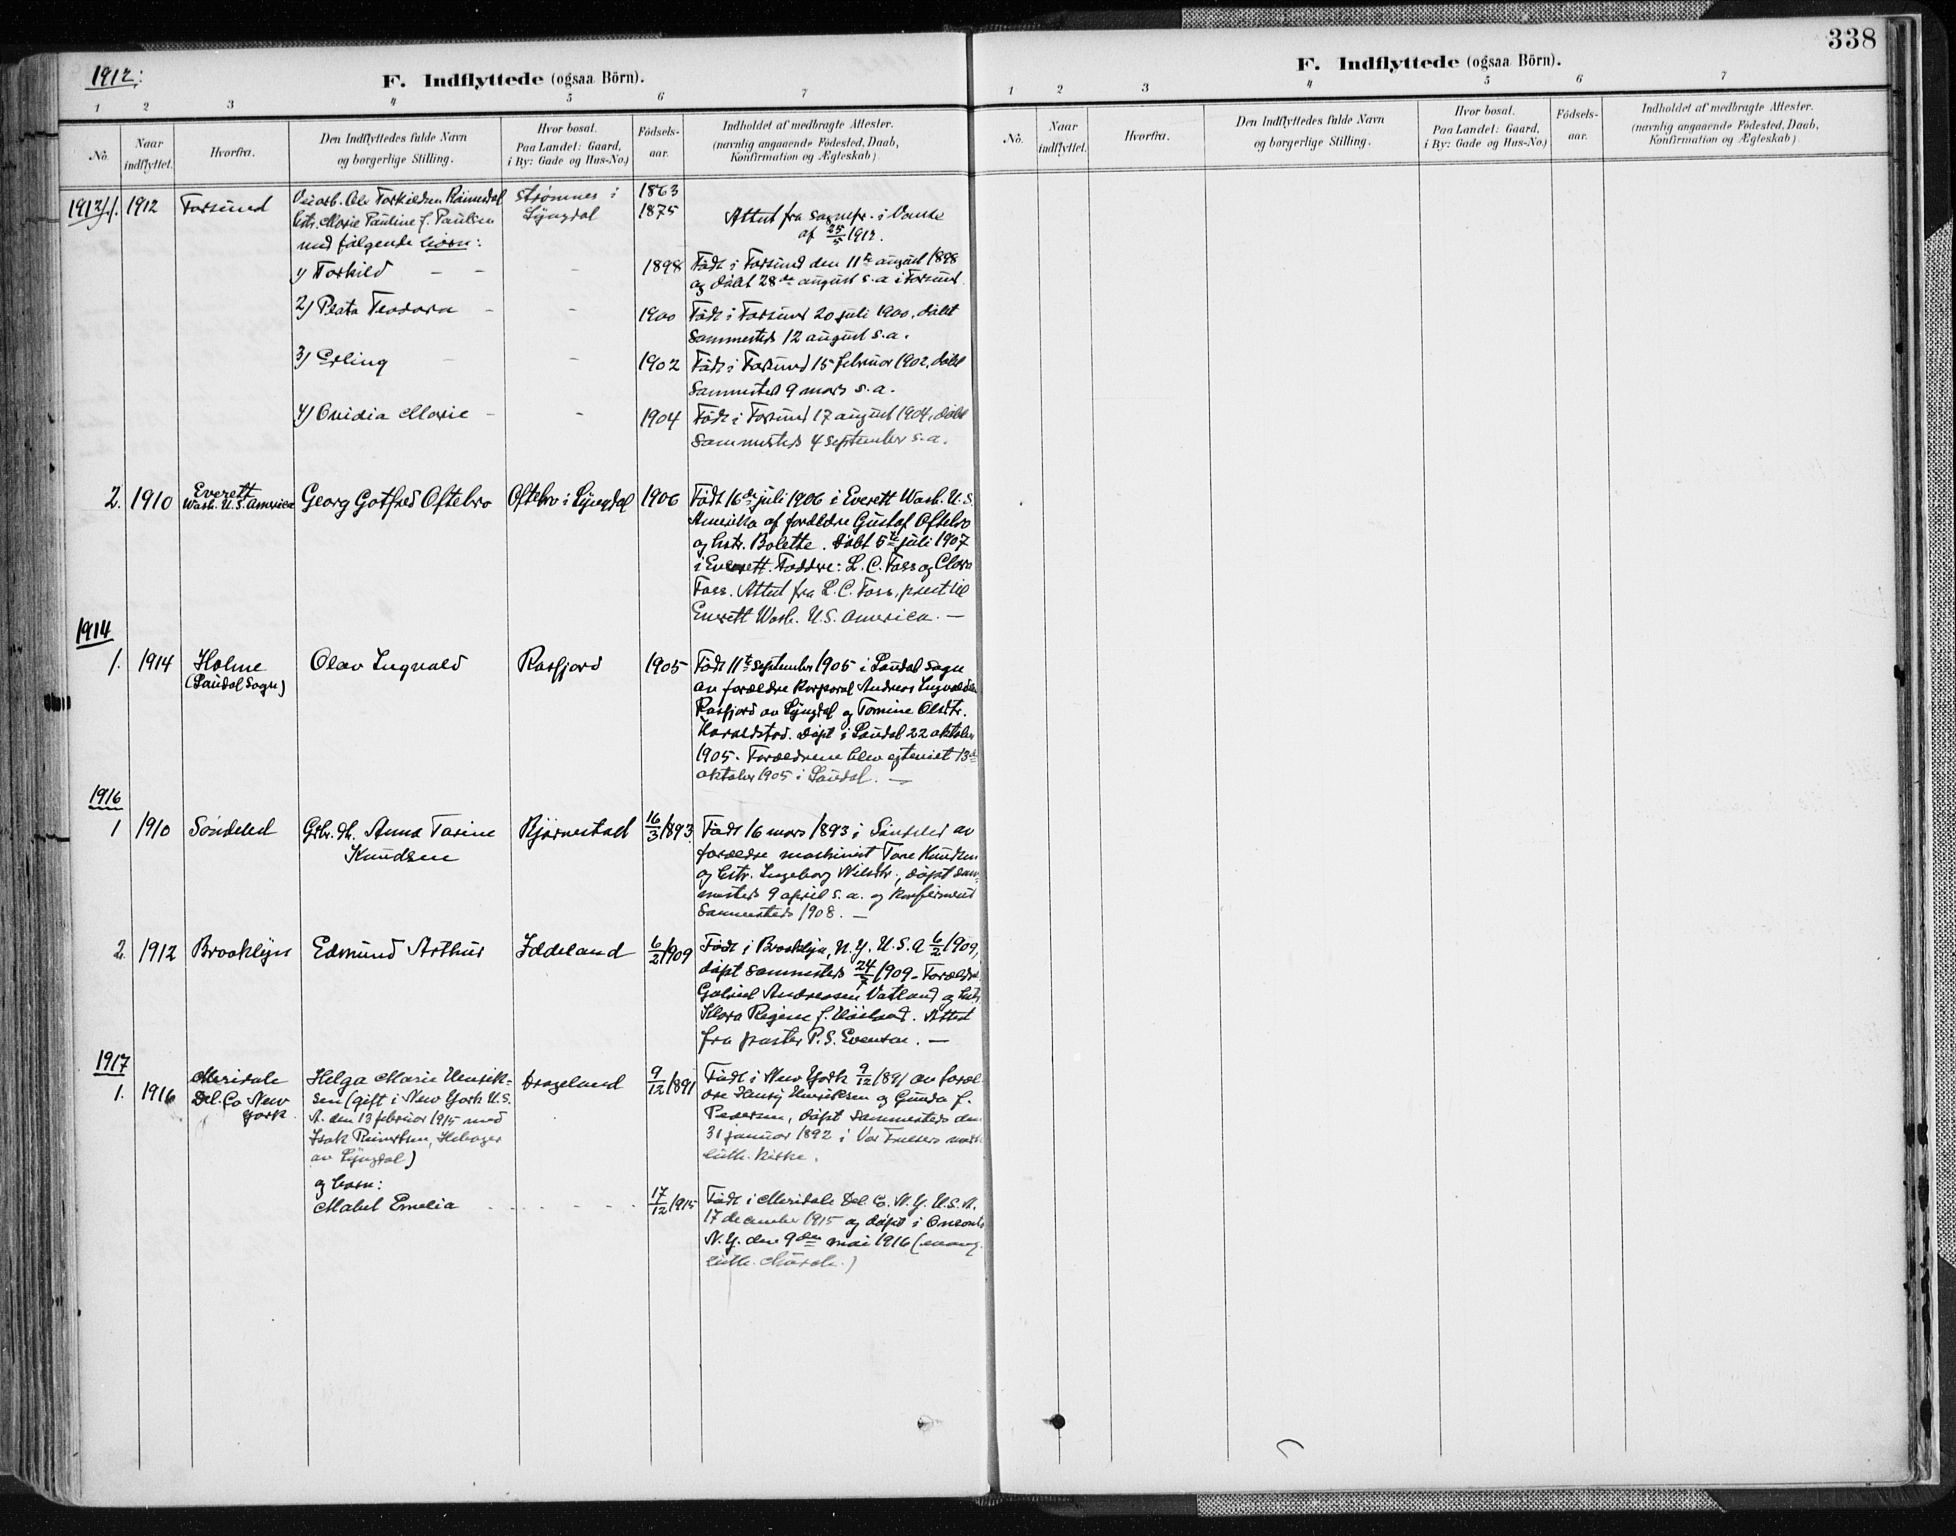 1912:
F. Indflyttede (ogsaa Börn).
1 2 3 4 5 6 7
No.
Naar indflyttet.
Hvorfra.
Den Indflyttedes fulde Navn og borgerlige Stilling.
Hvor bosat. Paa Landet: Gaard, i By: Gade og Hus-No.)
Födsels-aar.
Indholdet af medbragte Attester. (navnlig angaaende Födested, Daab, Konfirmation og Ægteskab)
1912 Farsund Ole Torkildsen Strømnes i 1863
Marie Pauline f. Paulsen Lyngdal 1875 Attest fra sognepr. i Vanse
med følgende børn: af 25/5 1912.
1) Torkild - - - 1898 Født i Farsund den 11te august 1898
og døbt 28de august s.a. i Farsund.
2) Teodora - - 1900 Født i Farsund 20 juli 1900, døbt
sammesteds 12 august s.a.
3) Erling - - 1902 Født i Farsund 15 februar 1902, døbt
sammesteds 9 mars s.a.
4) Ovidia Marie - - 1904 Født i Farsund 17 august 1904, døbt
sammesteds 4 september s.a.
2. 1910 Everett Wash. U.S. America Georg Gotfred Oftebro Oftebro i Lyngdal 1906 Født 16de juli 1906 i Everett Wash. U.S.
Amerika af forældre Gustaf Oftebro
og hstr. Bolette. Døbt 5te juli 1907
i Everett. Faddre: L. C. Foss og Clara
Foss. Attest fra L. C. Foss, prest til
Everett Wash. U.S. America. —
1914
1. 1914 Holme (Laudal sogn) Olav Ingvald Rosfjord 1905 Født 11te september 1905 i Laudal sogn
av forældre korporal Andreas Ingvaldsen
Rosfjord av Lyngdal og Tomine Olsdtr.
Haraldstad. Døpt i Laudal 22 oktober
1905. Forældrene blev egteviet 13de
oktober 1905 i Laudal. —
1916
1 1910 Søndeled Anna Tarine Knudsen Bjørnestad 16/3 1893. Født 16 mars 1893 i Søndeled av
forældre maskinist Tore Knudsen
og hstr. Ingeborg Nilsdtr., døpt sam-
mesteds 9 april s.a. og konfirmert
sammesteds 1908. —
2. 1912 Brooklyn Edmund Arthur Iddeland 6/2 1909 Født i Brooklyn, N.Y. U.S.A 6/2 1909,
døpt sammesteds 24/7 1909. Forældre
Gabriel Andreassen Vatland og hstr.
Klara Regine f. . Attest
fra pastor P. S. Evenson. —
1917
1. 1916 Meridale Del. Co New York Helga Marie Henrik- Drageland 9/12 1891 Født i New York 9/12 1891 av foræl-
sen (gift i New York U.S. dre Henriksen og Gunda f.
A. den 13 februar 1915 med Pedersen, døpt sammesteds den
Isak Reinertsen, 31 januar 1892 i Vor Frelsers norsk
av Lyngdal) luth. kirke.
og barn:
Mabel Emelia 17/12 1915 Født i Meridale Del. Co. N.Y. U.S.A.
17 december 1915 og døpt i Oneonta
N.Y. den 9de mai 1916 (evang.
luth. Church.)
338
F. Indflyttede (ogsaa Börn).
1 2 3 4 5 6 7
No.
Naar indflyttet.
Hvorfra.
Den Indflyttedes fulde Navn og borgerlige Stilling.
Hvor bosat. Paa Landet: Gaard, i By: Gade og Hus-No.)
Födsels-aar.
Indholdet af medbragte Attester. (navnlig angaaende Födested, Daab, Konfirmation og Ægteskab)